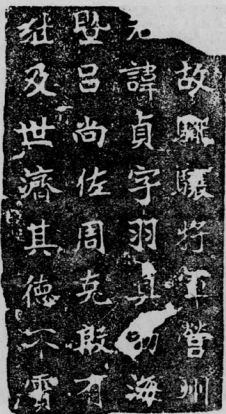 故龍驤將軍營州
諱貞字羽真勃海
暨呂尚佐周克殷有
及世濟其德不霣